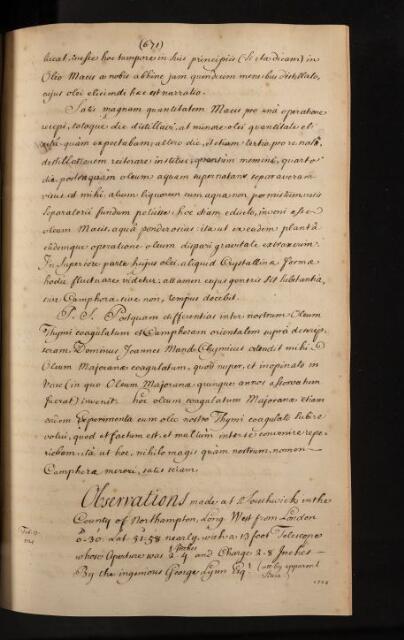 (671)
liceat, nuste hoc tempore in suis principiis (si ita dicam) in
Oleo Macis a nobis abhinc jam quindecim mensibus distillato,
cujus olei eliciendi hæc est narratio.
Satis magnam quantitatem Macis pro unâ operatione
recepi, totoque die distillavi, at minore olei quantitate eli-
citâ quàm expectabam; altero die, et etiam tertia pro re natâ,
distillationem reiterare institui; memini, quarto
die postquam oleum aquam supernatans separaveram
visus est mihi alium liquorem cum aqua non permistum
Separatorii fundum petiisse; hoc etiam educto, inveni esse
oleum Macis, aquâ ponderosius: ita ut ex eadem plantâ
eâdemque operatione oleum dispari gravitate extraxerim.
In Superiore parte hujus olei aliquid Crystallina forma
hodie fluctuare videtur; attamen cujus generis sit substantia,
sive Camphora sive non, tempus docebit.
P. S. Postquam differentias inter nostrum Oleum
Thymi coagulatum et Camphoram orientalem suprà descrip-
seram, Dominus Joannes Maud Chymicus ostendit mihi
Oleum Majoranæ coagulatum, quod nuper, et inopinato in
Vase (in quo Oleum Majorana quinque annos asservatum
fuerat) invenit. hoc oleum coagulatum Majoranæ etiam
eadem Experimenta cum oleo nostro Thymi coagulato subire
volui, quod et factum est, et multùm inter se convenire repe-
riebam, ità ut hoc, nihilo magis quàm nostrum, nomen
Camphoræ mereri, satis sciam.
Observations made at Southwick in the
County of Northampton, Long. West from London
0°-30'. Lat. 51-58 nearly, with a 13 foot Telescope
whose Aperture was 2-4 Inches and Charge 2-8 Inches
By the ingenious George Lynn Esqr. (are by apparent
time)